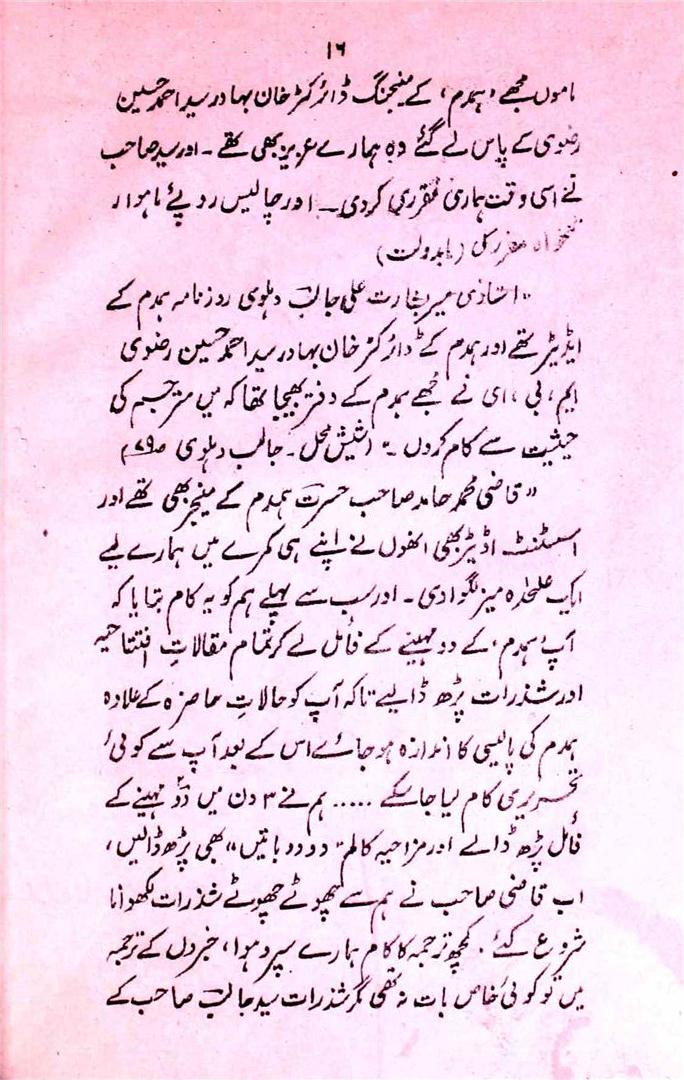 ۱۶
ماموں مجھے ’ہمدم‘ کے منیجنگ ڈائرکٹر خان بہادر سید احمد حسین
رضوی کے پاس لے گئے وہ ہمارے عزیز بھی تھے ۔ اور سید صاحب
نے اسی وقت ہماری تقرری کردی ۔ اور چالیس روپئے ماہوار
تنخواہ مقرر کی (مابدولت)
" استاذی میر بشارت علی جالبؔ دہلوی روزنامہ ہمدم کے
ایڈیٹر تھے اور ہمدم کے ڈائرکٹر خان بہادر سید احمد حسین رضوی
ایم ، بی ، ای نے مجھے ہمدم کے دفتر بھیجا تھا کہ میں مترجم کی
حیثیت سے کام کروں ۔" (شیش محل ۔ جالب دہلوی ص۷۹)
" قاضی محمد حامد صاحب حسرت ہمدم کے منیجر بھی تھے اور
اسسٹنٹ اڈیٹر بھی انھوں نے اپنے ہی کمرے میں ہمارے لیے
ایک علٰحدہ میز لگوا دی ۔ اور سب سے پہلے ہم کو یہ کام بتایا کہ
آپ ’ہمدم‘ کے دو مہینے کے فائل لے کر تمام مقالاتِ افتتاحیہ
اور شذرات پڑھ ڈالیے تاکہ آپ کو حالاتِ حاضرہ کے علاوہ
ہمدم کی پالیسی کا اندازہ ہو جائے اس کے بعد آپ سے کوئی
تحریری کام لیا جا سکے ..... ہم نے ۳ دن میں دو مہینے کے
فائل پڑھ ڈالے اور مزاحیہ کالم " دو دو باتیں " بھی پڑھ ڈالیں ،
اب قاضی صاحب نے ہم سے چھوٹے چھوٹے شذرات لکھوانا
شروع کئے ۔ کچھ ترجمہ کا کام ہمارے سپرد ہوا ، خبروں کے ترجمہ
میں تو کوئی خاص بات نہ تھی مگر شذرات سید جالبؔ صاحب کے